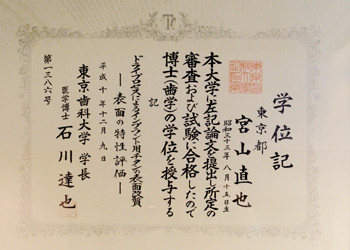 学位記
東京都
宮山直也
昭和三十三年八月十五日生
本大学に左記論文を提出し所定の
審査および試験に合格したので
博士(歯学)の学位を授与する
記
ドライプロセスによるインプラント用チタンの表面改質
―表面の特性評価―
平成十年十二月九日
東京歯科大学 学長
医学博士 石川達也
第一三八六号